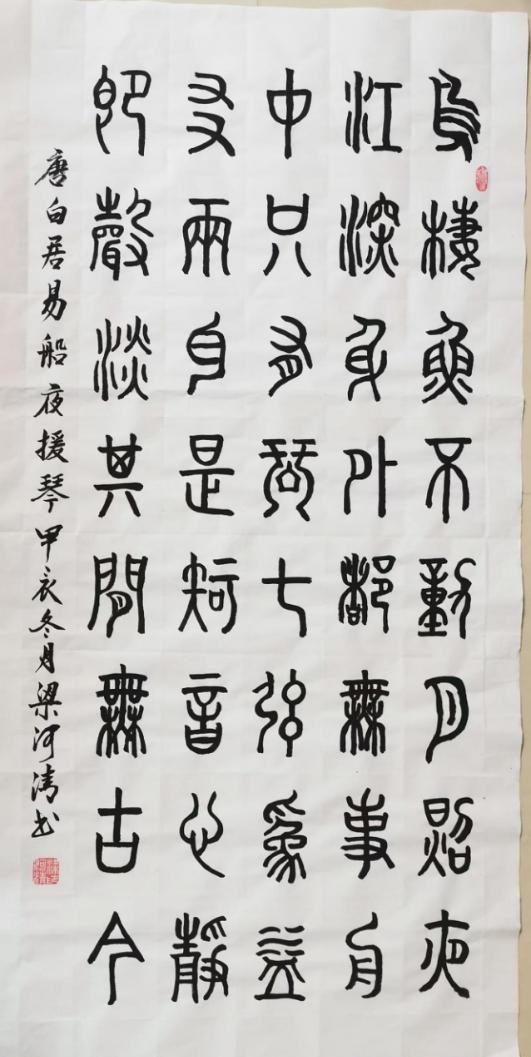 鳥棲魚不動月照夜
江深身外都無事舟
中只有琴七弦為益
友兩耳是知音心靜
即聲淡其間無古今
唐白居易船夜援琴甲辰冬月梁河清书